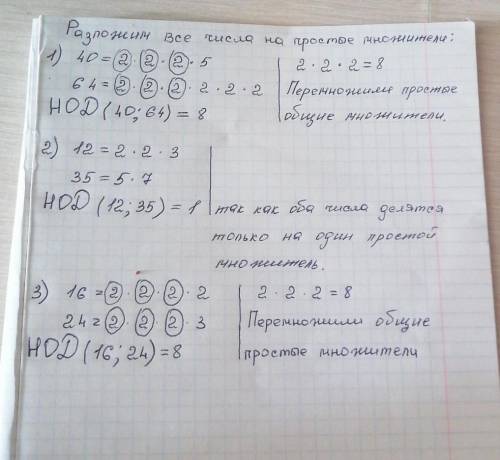 Разложим все числа на простые множители:
1) 40 = 2 · 2 · 2 · 5
2 · 2 · 2 = 8
64 = 2 · 2 · 2 · 2 · 2 · 2
Перемножили простые
НОД (40; 64) = 8
общие множители.
2) 12 = 2 · 2 · 3
35 = 5 · 7
НОД (12; 35) = 1
так как оба числа делятся
только на один простой
множитель.
3) 16 = 2 · 2 · 2 · 2
2 · 2 · 2 = 8
24 = 2 · 2 · 2 · 3
Перемножили общие
НОД (16; 24) = 8
простые множители